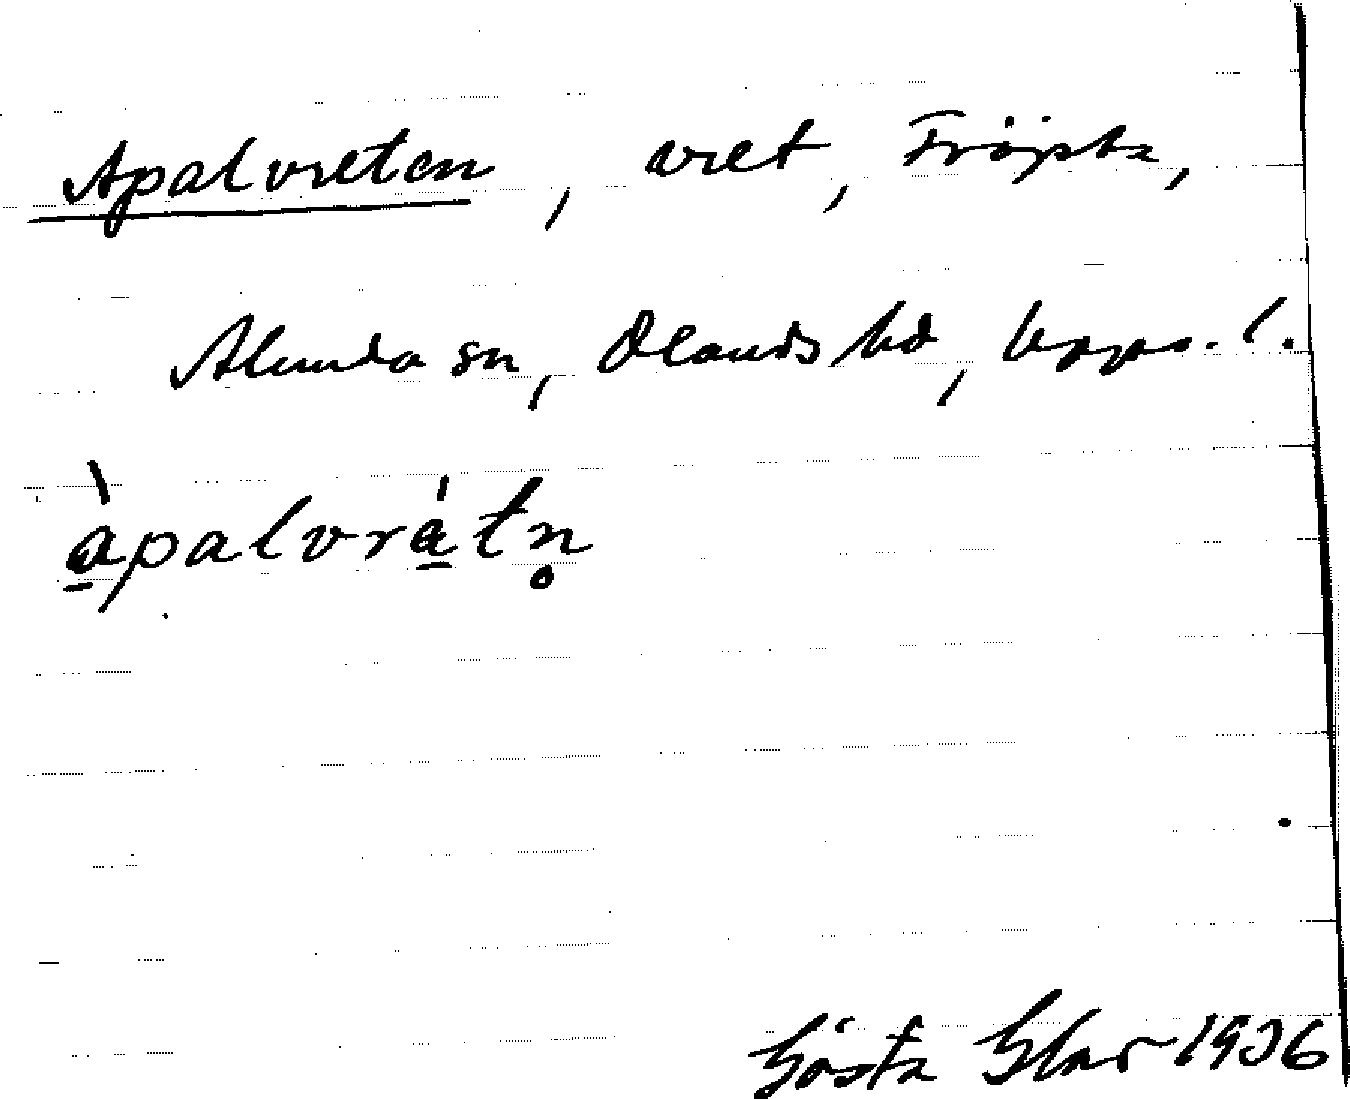 Apalvreten, vret, Fröpta,
Alunda sn, Olands hd, Upps. l.
a̱̍palvra̱̍tn̥
Gösta Klar 1936